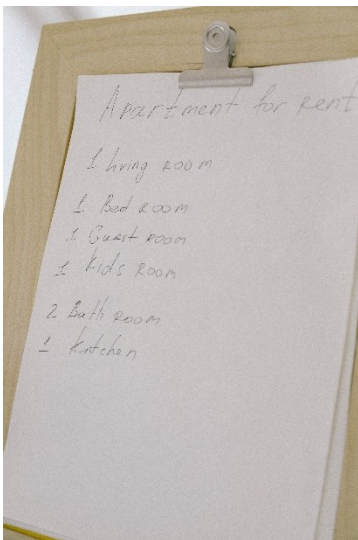 Apartment for rent
1 living room
1 Bed room
1 Guest room
1 Kids room
2 Bath room
1 Kitchen